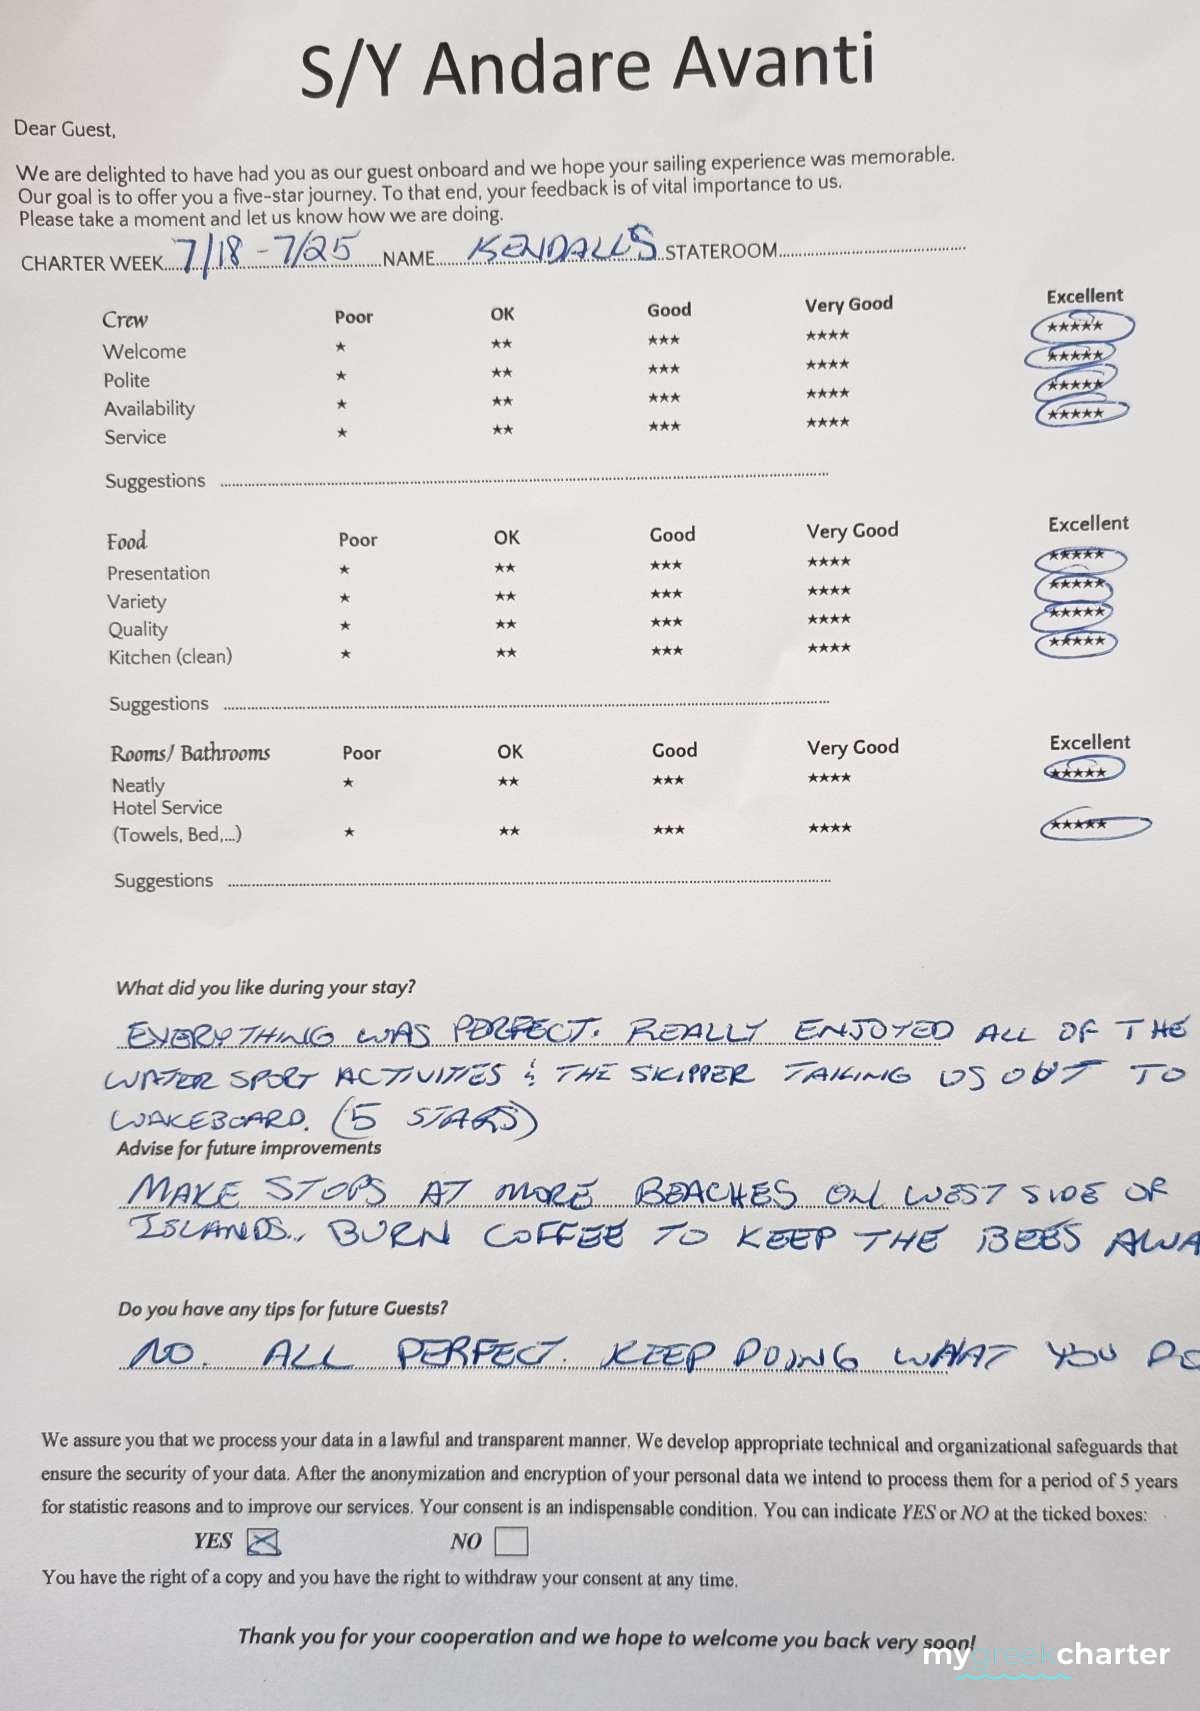 S/Y Andare Avanti
Dear Guest,
We are delighted to have had you as our guest onboard and we hope your sailing experience was memorable.
Our goal is to offer you a five-star journey. To that end, your feedback is of vital importance to us.
Please take a moment and let us know how we are doing.
CHARTER WEEK 7/18 - 7/25 NAME KENDALL'S STATEROOM
Crew Poor OK Good Very Good Excellent
Welcome ★ ★★ ★★★ ★★★★ ★★★★★
Polite ★ ★★ ★★★ ★★★★ ★★★★★
Availability ★ ★★ ★★★ ★★★★ ★★★★★
Service ★ ★★ ★★★ ★★★★ ★★★★★
Suggestions
Food Poor OK Good Very Good Excellent
Presentation ★ ★★ ★★★ ★★★★ ★★★★★
Variety ★ ★★ ★★★ ★★★★ ★★★★★
Quality ★ ★★ ★★★ ★★★★ ★★★★★
Kitchen (clean) ★ ★★ ★★★ ★★★★ ★★★★★
Suggestions
Rooms/ Bathrooms Poor OK Good Very Good Excellent
Neatly ★ ★★ ★★★ ★★★★ ★★★★★
Hotel Service
(Towels, Bed,...) ★ ★★ ★★★ ★★★★ ★★★★★
Suggestions
What did you like during your stay?
EVERYTHING WAS PERFECT. REALLY ENJOYED ALL OF THE
WATER SPORT ACTIVITIES & THE SKIPPER TAKING US OUT TO
WAKEBOARD. (5 STARS)
Advise for future improvements
MAKE STOPS AT MORE BEACHES ON WEST SIDE OF
ISLANDS., BURN COFFEE TO KEEP THE BEES AWA
Do you have any tips for future Guests?
NO. ALL PERFECT. KEEP DOING WHAT YOU DO
We assure you that we process your data in a lawful and transparent manner. We develop appropriate technical and organizational safeguards that
ensure the security of your data. After the anonymization and encryption of your personal data we intend to process them for a period of 5 years
for statistic reasons and to improve our services. Your consent is an indispensable condition. You can indicate YES or NO at the ticked boxes:
YES NO
You have the right of a copy and you have the right to withdraw your consent at any time.
Thank you for your cooperation and we hope to welcome you back very soon!
mygreekcharter